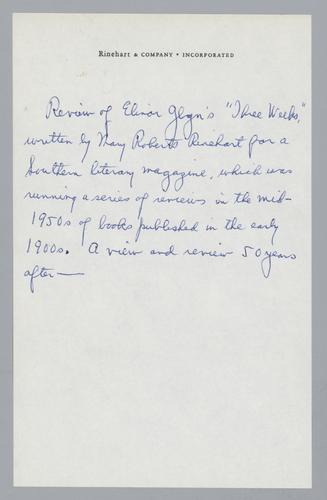 Rinehart & COMPANY • INCORPORATED
Review of Elinor Glyn's "Three Weeks,"
written by Mary Roberts Rinehart for a
Southern literary magazine, which was
running a series of reviews in the mid-
1950s of books published in the early
1900s. A view and review 50 years
after—